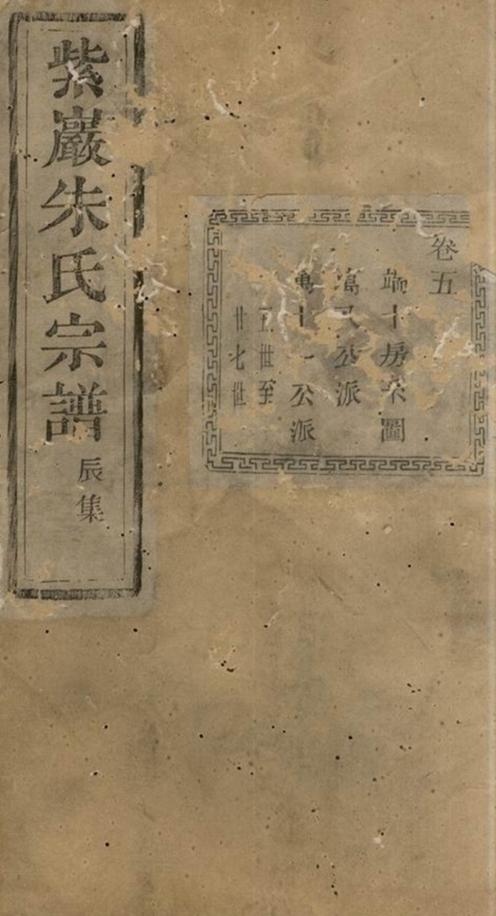 卷五
端十房宗圖
萬八公派
萬十一公派
五世至
廿七世
紫巖朱氏宗譜
辰集